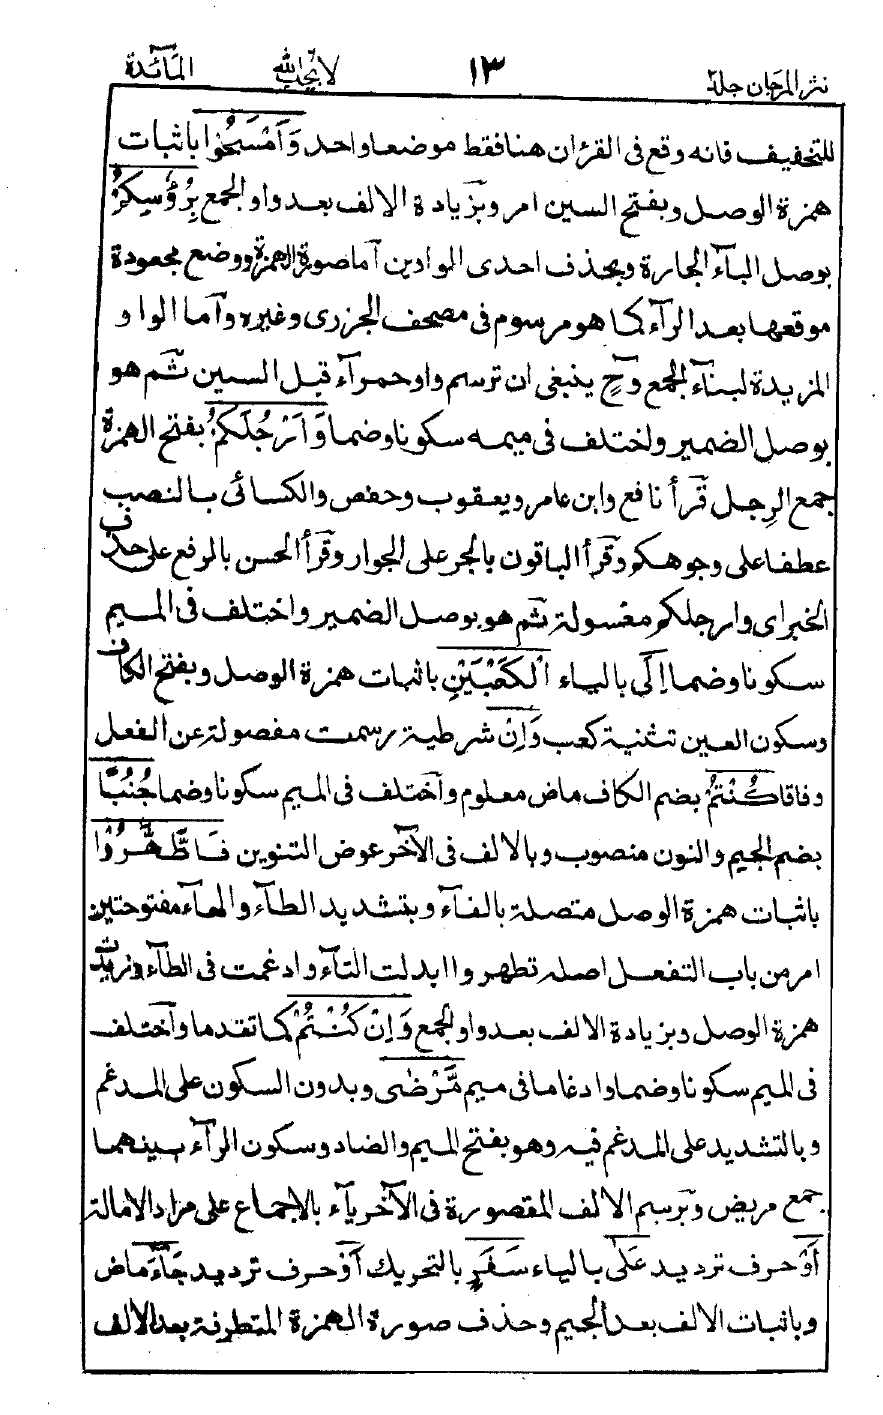 نثر المرجان جلد٢ ١٣ لا يحب الله المآئدة
للتخفيف فانه وقع فى القرءان هنا فقط موضعا واحد وَامْسَحُوا باثبات
همزة الوصل وبفتح السين امر وبزيادة الالف بعد واو الجمع بِرُؤُسِكُمْ
بوصل البآء الجارة وبحذف احدى الواوين اما صورة الهمزة ووضع مجعودة
موقعها بعد الرآء كما هو مرسوم فى مصحف الجزرى وغيره وآما الواو
المزيدة لبنآء الجمع وح ينبغى ان ترسم واو حمرآء قبل السين ثم هو
بوصل الضمير واختلف فى ميمه سكونا وضما وَاَرْجُلَكُمْ بفتح الهمزة
جمع الرِجل قرأ نافع وابن عامر ويعقوب وحفص والكسائى بالنصب
عطفا على وجوهكم وقرأ الباقون بالجر على الجوار وقرأ الحسن بالرفع على حذف
الخبر اى وارجلكم مغسولة ثم هو بوصل الضمير واختلف فى الميم
سكونا وضما اِلَى بالياء الْكَعْبَيْنِ باثبات همزة الوصل وبفتح الكاف
وسكون العين تثنية كعب وَاِنْ شرطية رسمت مفصولة عن الفعل
وفاقا كُنْتُمْ بضم الكاف ماض معلوم واختلف فى الميم سكونا وضما جُنُبًا
بضم الجيم والنون منصوب وبالالف فى الآخر عوض التنوين فَاطَّهَّرُوْا
باثبات همزة الوصل متصلة بالفآء وبتشديد الطآء والهآء مفتوحتين
امر من باب التفعل اصله تطهروا ابدلت التآء وادغمت فى الطآء وزيدت
همزة الوصل وبزيادة الالف بعد واو الجمع وَاِنْ كُنْتُمْ كما تقدما واختلف
فى الميم سكونا وضما وادغاما فى ميم مَّرْضٰى وبدون السكون على المدغم
وبالتشديد على المدغم فيه وهو بفتح الميم والضاد وسكون الرآء بينهما
جمع مريض وبرسم الالف المقصورة فى الآخر يآء بالاجماع على مراد الامالة
اَوْ حرف ترديد عَلٰى بالياء سَفَرٍ بالتحريك اَوْ حرف ترديد جَآءَ ماض
وباثبات الالف بعد الجيم وحذف صورة الهمزة المتطرفة بعد الالف